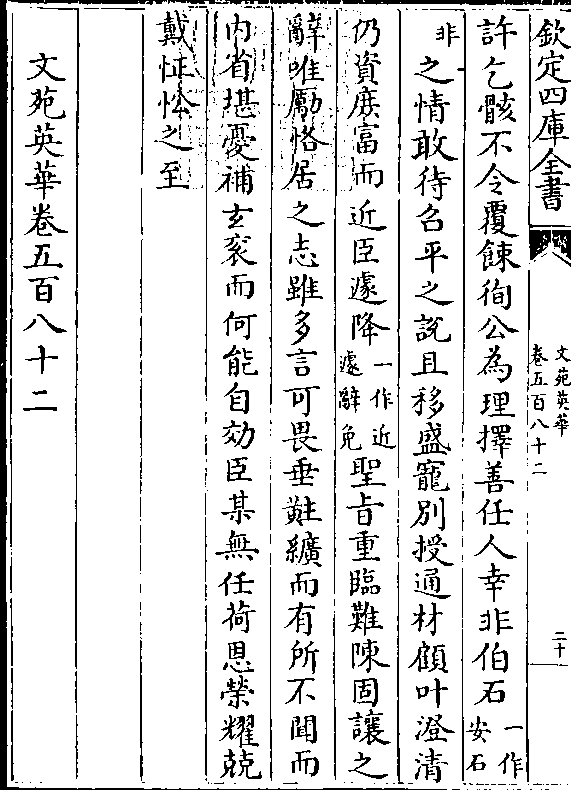 欽定四庫全書
文苑英華
卷五百八十二
二十
許乞骸不令覆餗徇公為理擇善任人幸非伯石一作安石
非之情敢待召平之說且移盛寵別授通材顧叶澄清
仍資庶富而近臣遽降一作近遽辭免聖旨重臨難陳固讓之
辭唯勵恪居之志雖多言可畏垂黈纊而有所不聞而
内省堪憂補玄衮而何能自効臣某無任荷恩榮耀兢
戴怔忪之至
文苑英華卷五百八十二